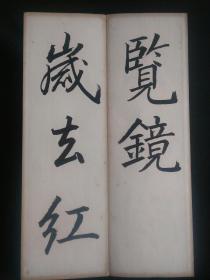 覽鏡
歲去紅